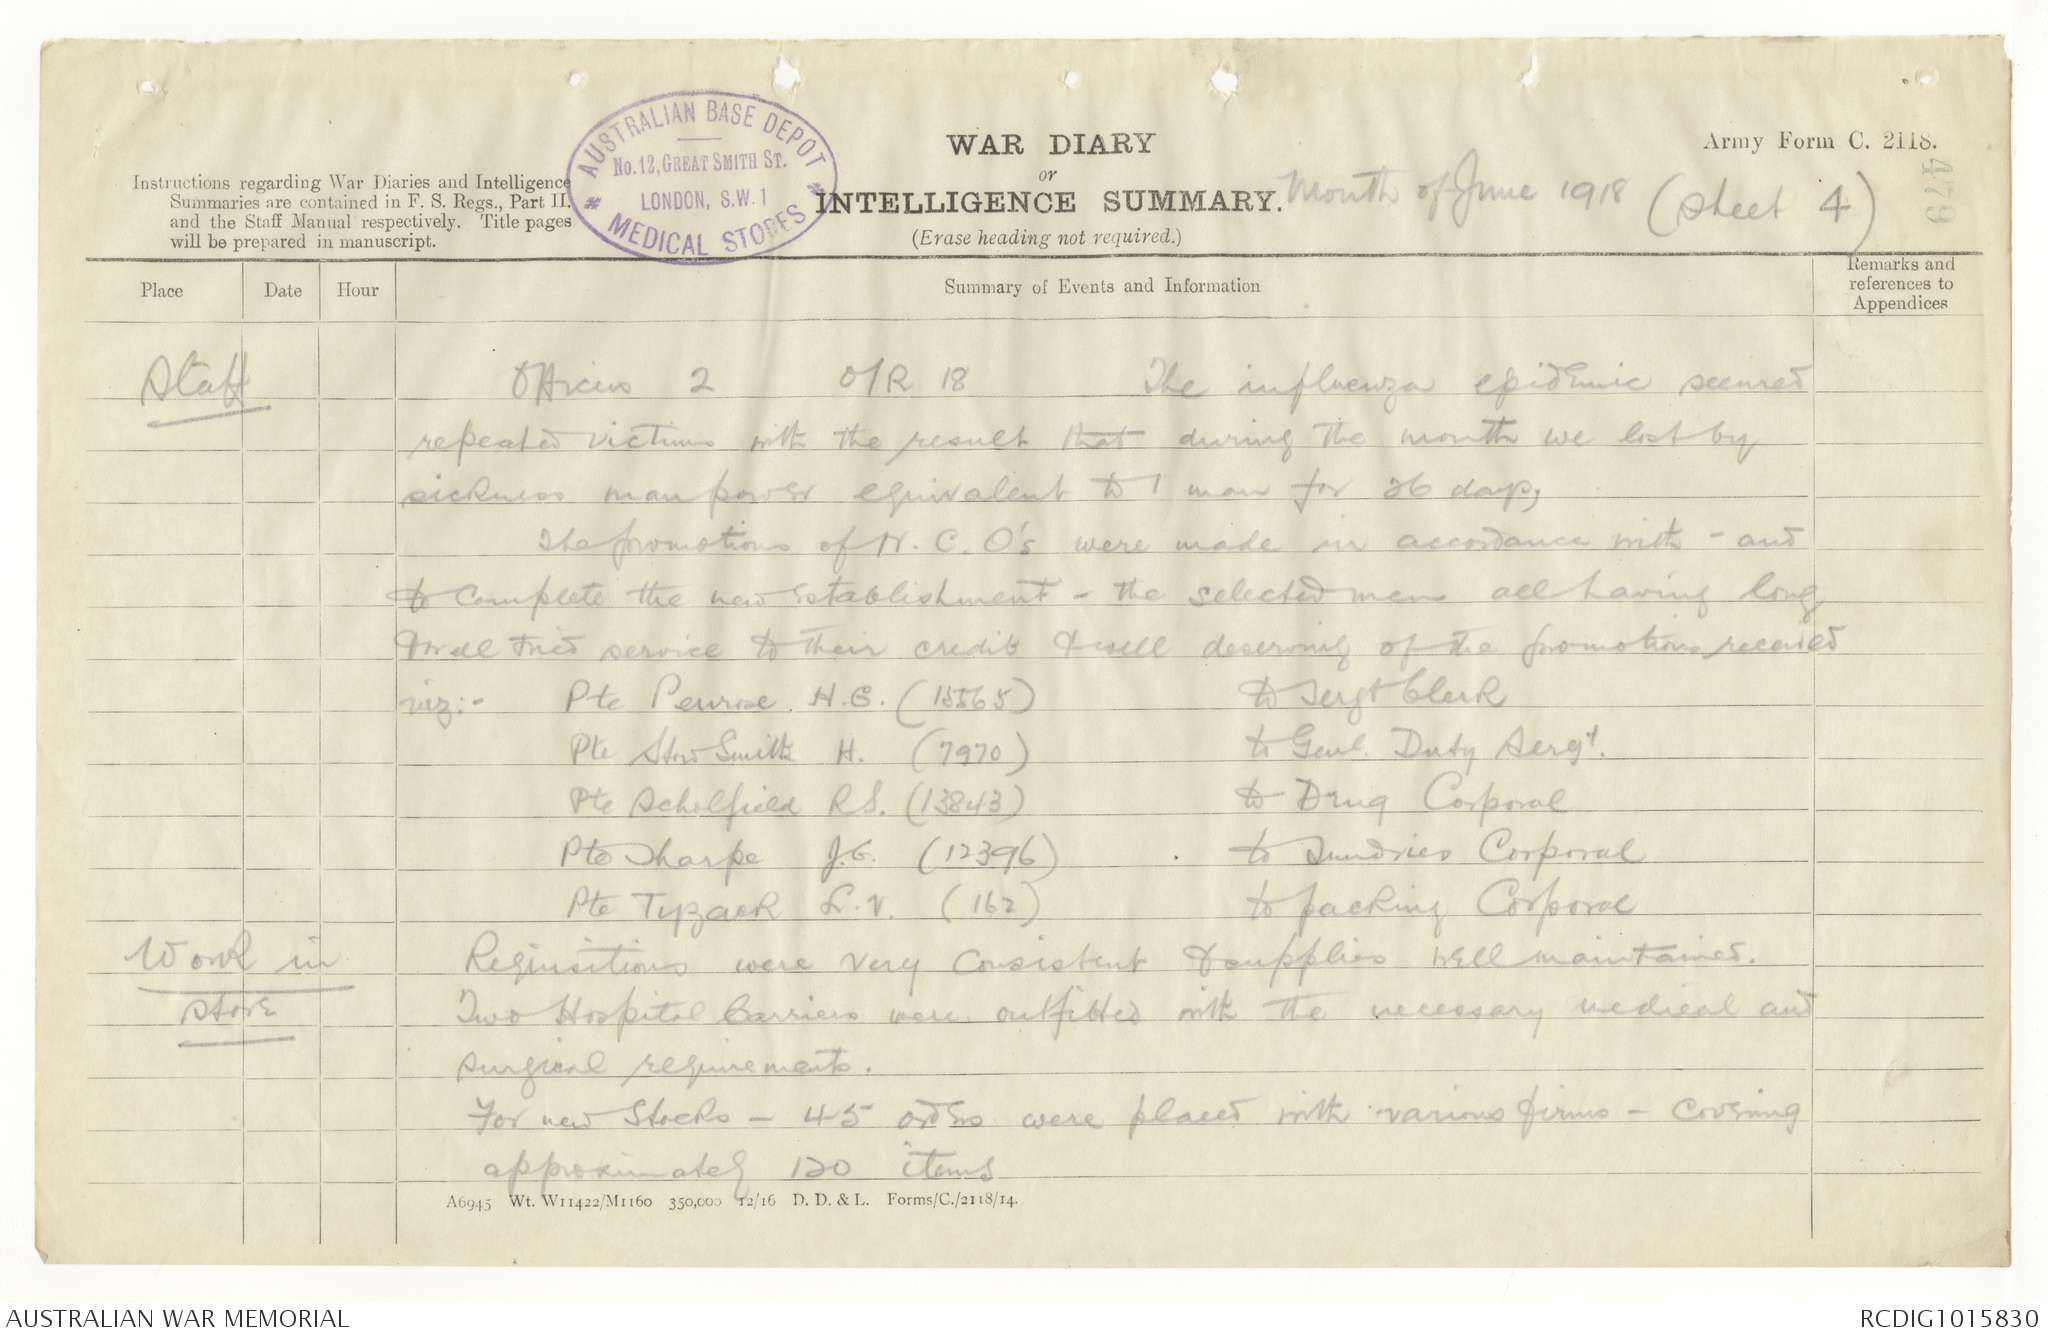 AUSTRALIAN BASE DEPOT
No. 12, GREAT SMITH ST.
LONDON, S.W.1
MEDICAL STORES
Army Form C. 2118.
479
WAR DIARY
or
INTELLIGENCE SUMMARY.
(Erase heading not required.)
Month of June 1918 (Sheet 4)
Instructions regarding War Diaries and Intelligence
Summaries are contained in F. S. Regs., Part II.
and the Staff Manual respectively. Title pages
will be prepared in manuscript.
Place Date Hour Summary of Events and Information Remarks and references to Appendices
Staff Officers 2 O/R 18 The influenza epidemic secured
repeated victims with the result that during the month we lost by
sickness man power equivalent to 1 man for 26 days,
The promotions of N.C.O's were made in accordance with - and
to complete the new establishment - the selected men all having long
& well tried service to their credit & well deserving of the promotions received
viz:- Pte Penrose H.G. (15565) to Sergt Clerk
Pte Stow Smith H. (7970) to Genl. Duty Sergt.
Pte Scholfield R.S. (13843) to Drug Corporal
Pte Sharpe J.G. (12396) to Sundries Corporal
Pte Tyzack L.V. (162) to packing Corporal
Work in Requisitions were very consistent & supplies well maintained.
Store Two Hospital Carriers were outfitted with the necessary medical and
surgical requirements.
For new Stocks - 45 orders were placed with various firms - covering
approximately 120 items
A6945 Wt. W11422/M1160 350,000 12/16 D. D. & L. Forms/C./2118/14.
AUSTRALIAN WAR MEMORIAL
RCDIG1015830